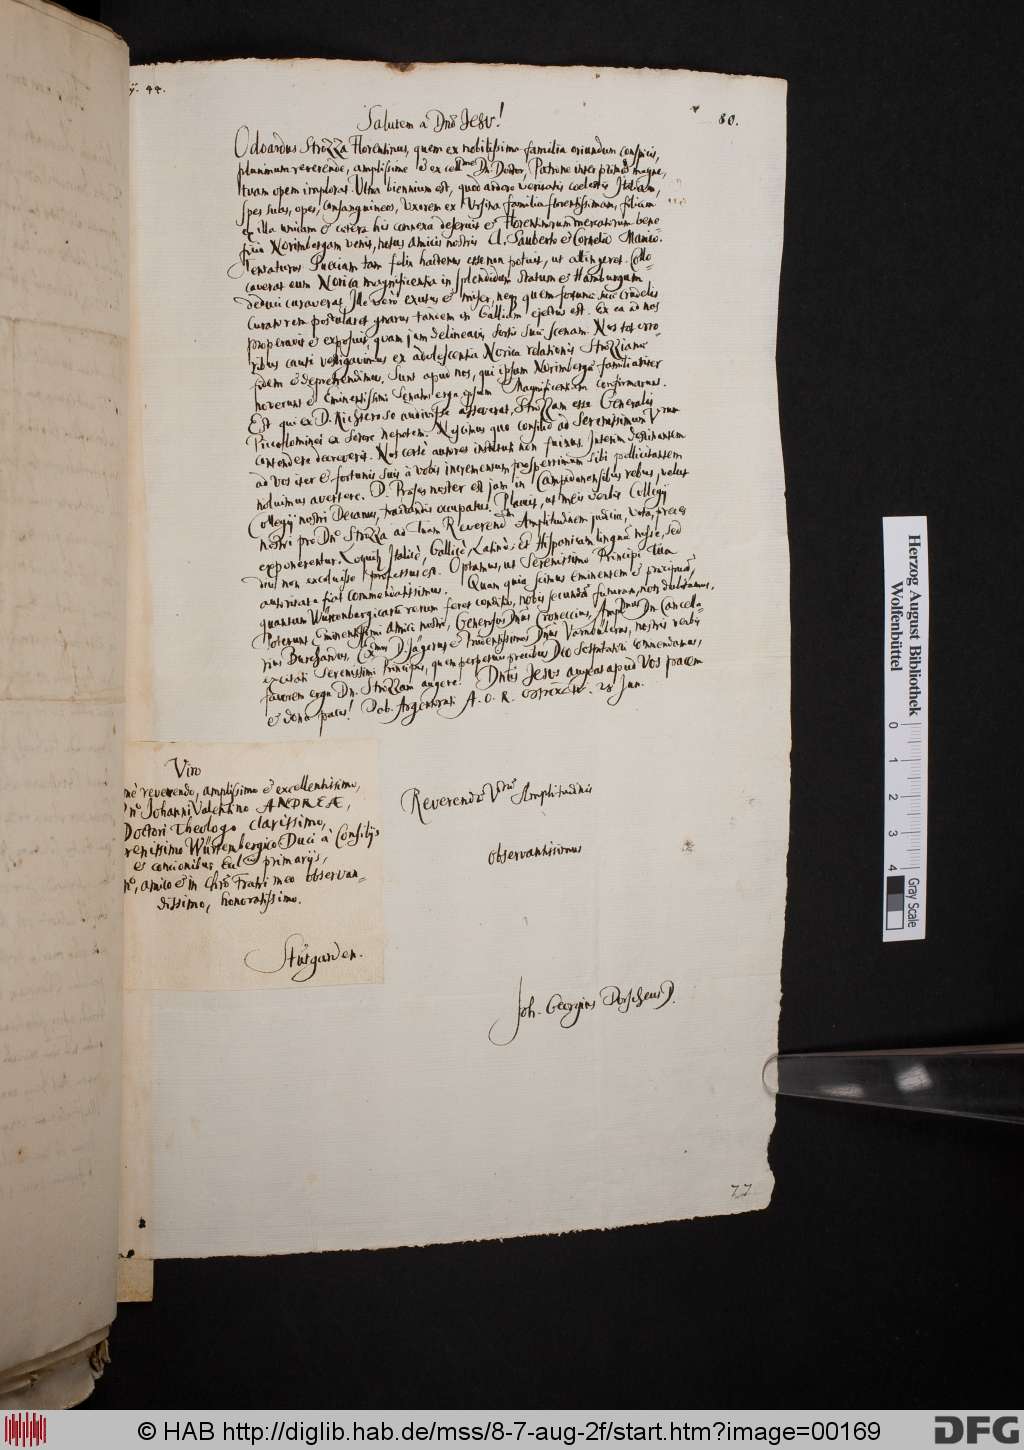 44.
80.
Salutem à Dnô Jesu!
Odoardus Strozza Florentinus, quem ex nobilissima familia oriundum conspicis,
plurimum reverende, amplissime & ex cellme Dn. Doctor, Patrone inter primos magne,
tuam opem implorat. Ultra biennium est, quod ardore veritatis coelestis Italiam,
spes suas, opes, consanguineos, uxorem ex Ursina familia florentissimam, filiam
ex illa unicam & cetera his connexa deseruit & Florentinorum mercatorum bene-
ficio Norimbergam venit, notus amicis nostris Cl. Sauberto & Cornelio Marco.
tam felix hactenus esse non potuit, ut attingeret. Collo-
caverat eum Norica magnificentia in splendidum statum & Hamburgum
deduci curaverat. Ille verò exutus & miser, nem quem fortunae suae crudelis
curatorem postularet gnarus tandem in Galliam ejectus est. Ex ea ad nos
properavit & exposuit, quam jam delineavi, sortis suae scenam. Nos tot erro-
ribus cauti vestigavimus ex adolescentia Norica relationis Strozzianae
fidem & deprehendimus. Sunt apud nos, qui ipsum Norimbergae familiariter
noverunt & Eminentissimi Senatus erga ipsum Magnificentiam confirmarunt.
Est qui ex D. Richtero se audivisse asseverat, Strozzam esse Generalis
Piccolominei ex sorore nepotem. Nescimus quo consilio ad Serenissimum Vrum
contendere decreverit. Nos certè autores instituti non fuimus. Interim destinantem
ad vos iter & fortunis suis à vobis incrementum prosperrimum sibi pollicitantem
noluimus avertere. D. Profes noster est jam in Campidonensibus rebus, velut
Collegij nostri Decanus, tractandis occupatus. Placuit, ut meis verbis Collegij
nostri pro Dno Strozza ad Tuam Reverend. Amplitudinem judicia, vota, preces
exponerentur. Loquitur Italicè, Gallicè, Latinè; et Hispanicam linguam nosse, sed
diu non excoluisse professus est. Optamus, ut Serenissimo Principi Tua
autoritate fiat commendatissimus. Quam quia scimus eminentem & praecipuam,
quantum Würtenbergicarum rerum feret conditio, nobis secundam futuram, non dubitamus.
Poterunt Eminentissimi amici nostri, Generosus Dnus Croneccius, Amplmus Dn. Cancella-
rius Burckardus, D. Jägerus & Prudentissimus Dnus Varnbülerus, nostris verbis
excitati Serenissimi Principis, quem perpetuis precibus Deo sospitatori commendamus,
favorem erga Dn. Strozzam augere. Dnus Jesus augeat apud Vos pacem
& dona pacis! Dab. Argentorati A. O. R. 28 Jun.
Reverendae Vrae Amplitudinis
observantissimus
Joh. Georgius Dorscheus D.
Viro
reverendo, amplissimo & excellentissimo,
Johanni Valentino ANDREÆ,
Doctori Theologo clarissimo,
Würtembergico Duci à Consilijs
& concionibus primarijs,
amico & in Chrõ Fratri meo observan-
dissimo, honoratissimo.
Stutgarden.
77
Herzog August Bibliothek
Wolfenbüttel
0 1 2 3 4
Gray Scale
© HAB http://diglib.hab.de/mss/8-7-aug-2f/start.htm?image=00169
DFG